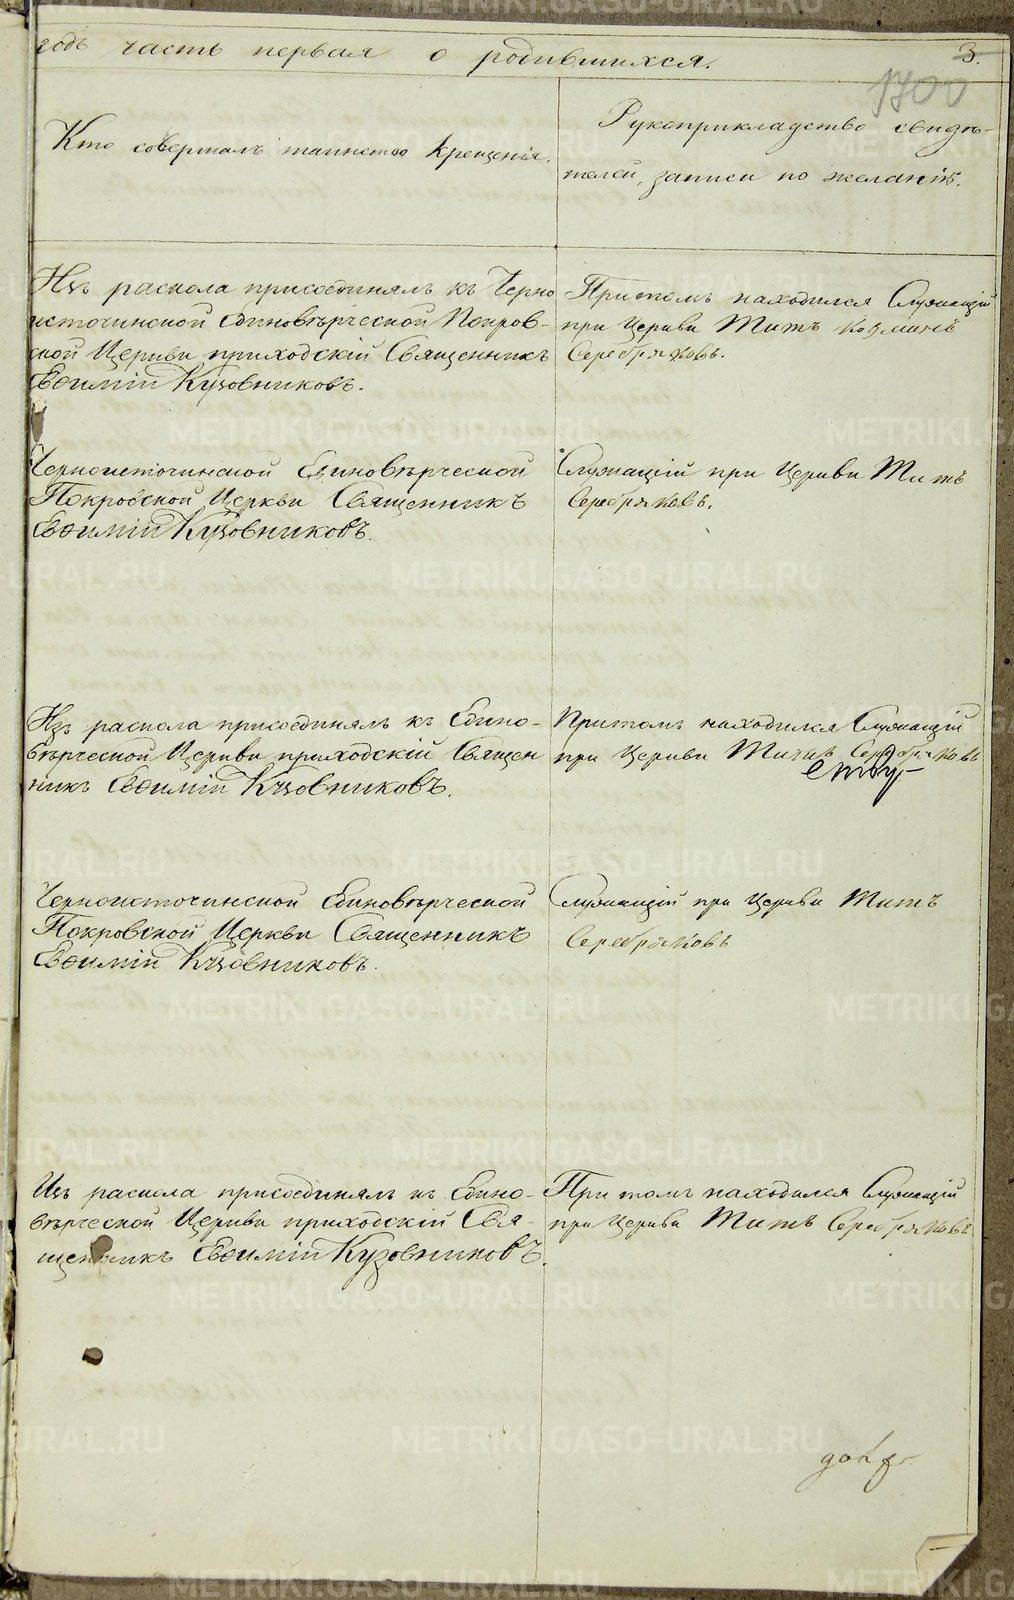 годъ часть первая о родившихся.
3.
1700
Кто совершалъ таинство крещенія.
Рукоприкладство свидѣ-
телей, записи по желанію.
Изъ раскола присоединялъ къ Черно
источинской Единовѣрческой Покров-
ской Церкви приходскій Священникъ
Евѳимій Кузовниковъ.
Притомъ находился Служащій
при Церкви Титъ Козминъ
Серебряковъ.
Черноисточинской Единовѣрческой
Покровской Церкви Священникъ
Евѳимій Кузовниковъ.
Служащій при Церкви Титъ
Серебряковъ.
Изъ раскола присоединялъ къ Едино-
вѣрческой Церкви приходскій Священ
никъ Евѳимій Кузовниковъ.
Притомъ находился Служащій
при Церкви Титъ Серебряковъ
Черноисточинской Единовѣрческой
Покровской Церкви Священникъ
Евѳимій Кузовниковъ.
Служащій при Церкви Титъ
Серебряковъ
Изъ раскола присоединялъ къ Едино-
вѣрческой Церкви приходскій Свя-
щенникъ Евѳимій Кузовниковъ.
При томъ находился Служащій
при Церкви Титъ Серебряковъ
METRIKI.GASO-URAL.RU